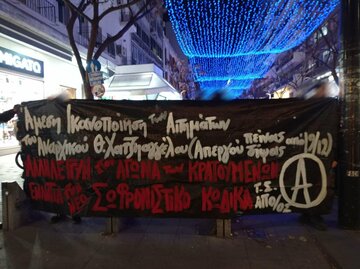 MIGATO
Άμεση Ικανοποίηση των Αιτημάτων
Του Αναρχικού Θ. Χατζηαγγέλου (Απεργού πείνας από 12/12)
ΑΛΛΗΛΕΓΓΥΗ ΣΤΟΝ ΑΓΩΝΑ ΤΩΝ ΚΡΑΤΟΥΜΕΝΩΝ
ΕΝΑΝΤΙΑ ΣΤΟΝ ΝΕΟ ΣΩΦΡΟΝΙΣΤΙΚΟ ΚΩΔΙΚΑ
Α